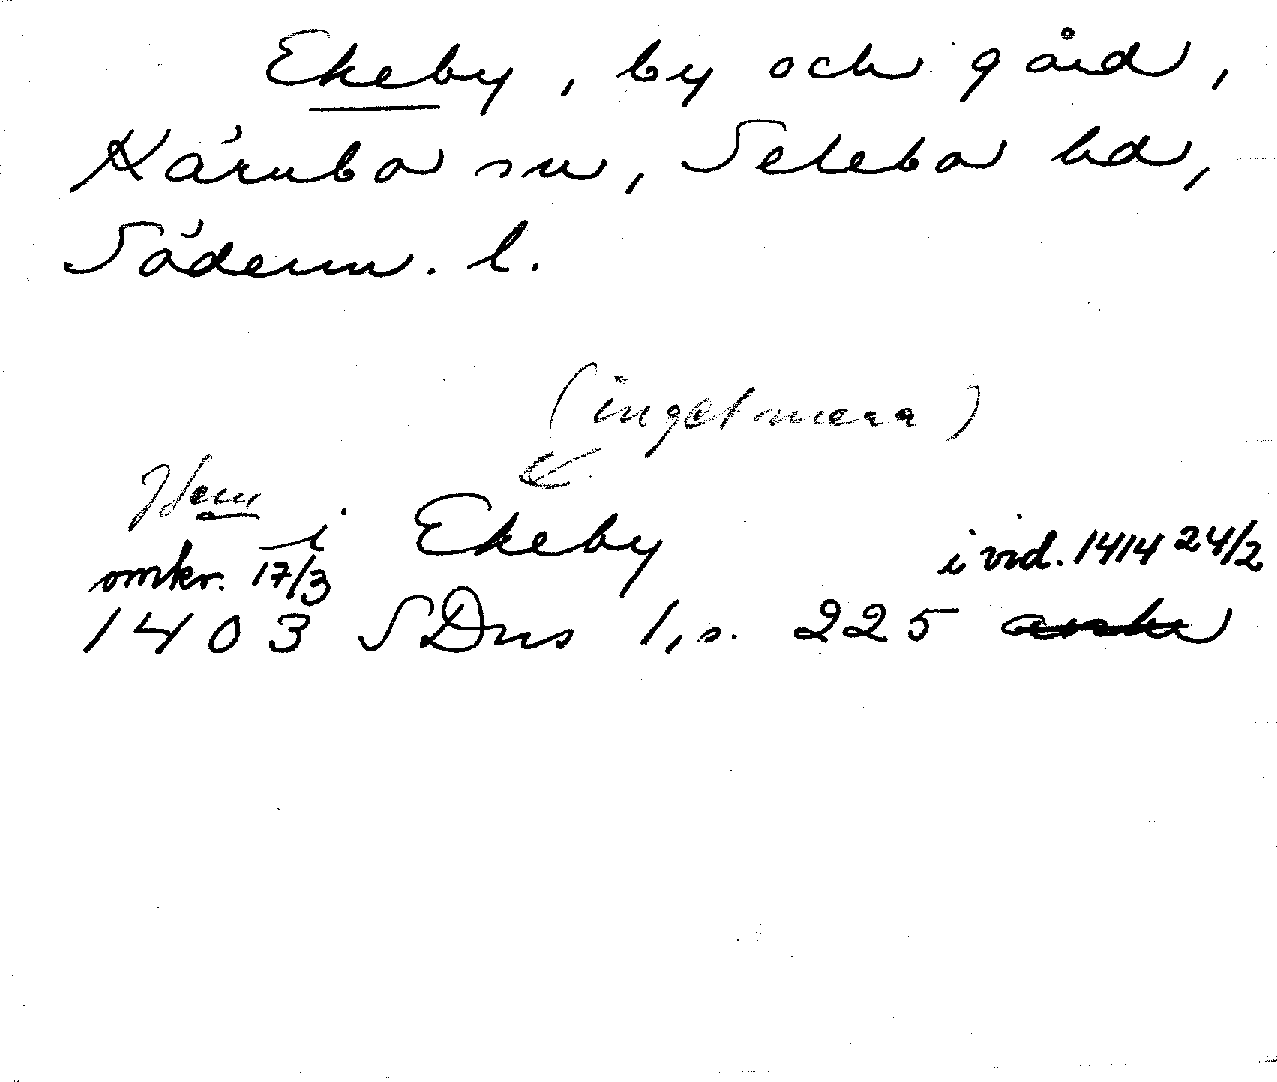 Ekeby, by och gård,
Kärnbo sn, Selebo hd,
Söderm. l.
(inget mera)
Item
i Ekeby
omkr. 17/3 i vid. 1414 24/2
1403 SDns 1, s. 225